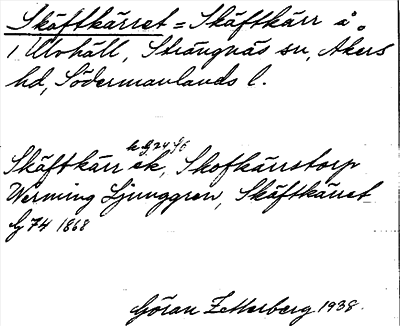 Skäftkärret = Skäftkärr å
i Ulvhäll, Strängnäs sn, Åkers
hd, Södermanlands l.
k G 24 f 6
Skäftkärr ek, Skofkärrstorp
Werming Ljunggren, Skäftkärret
G 74 1868
Göran Zetterberg 1938.